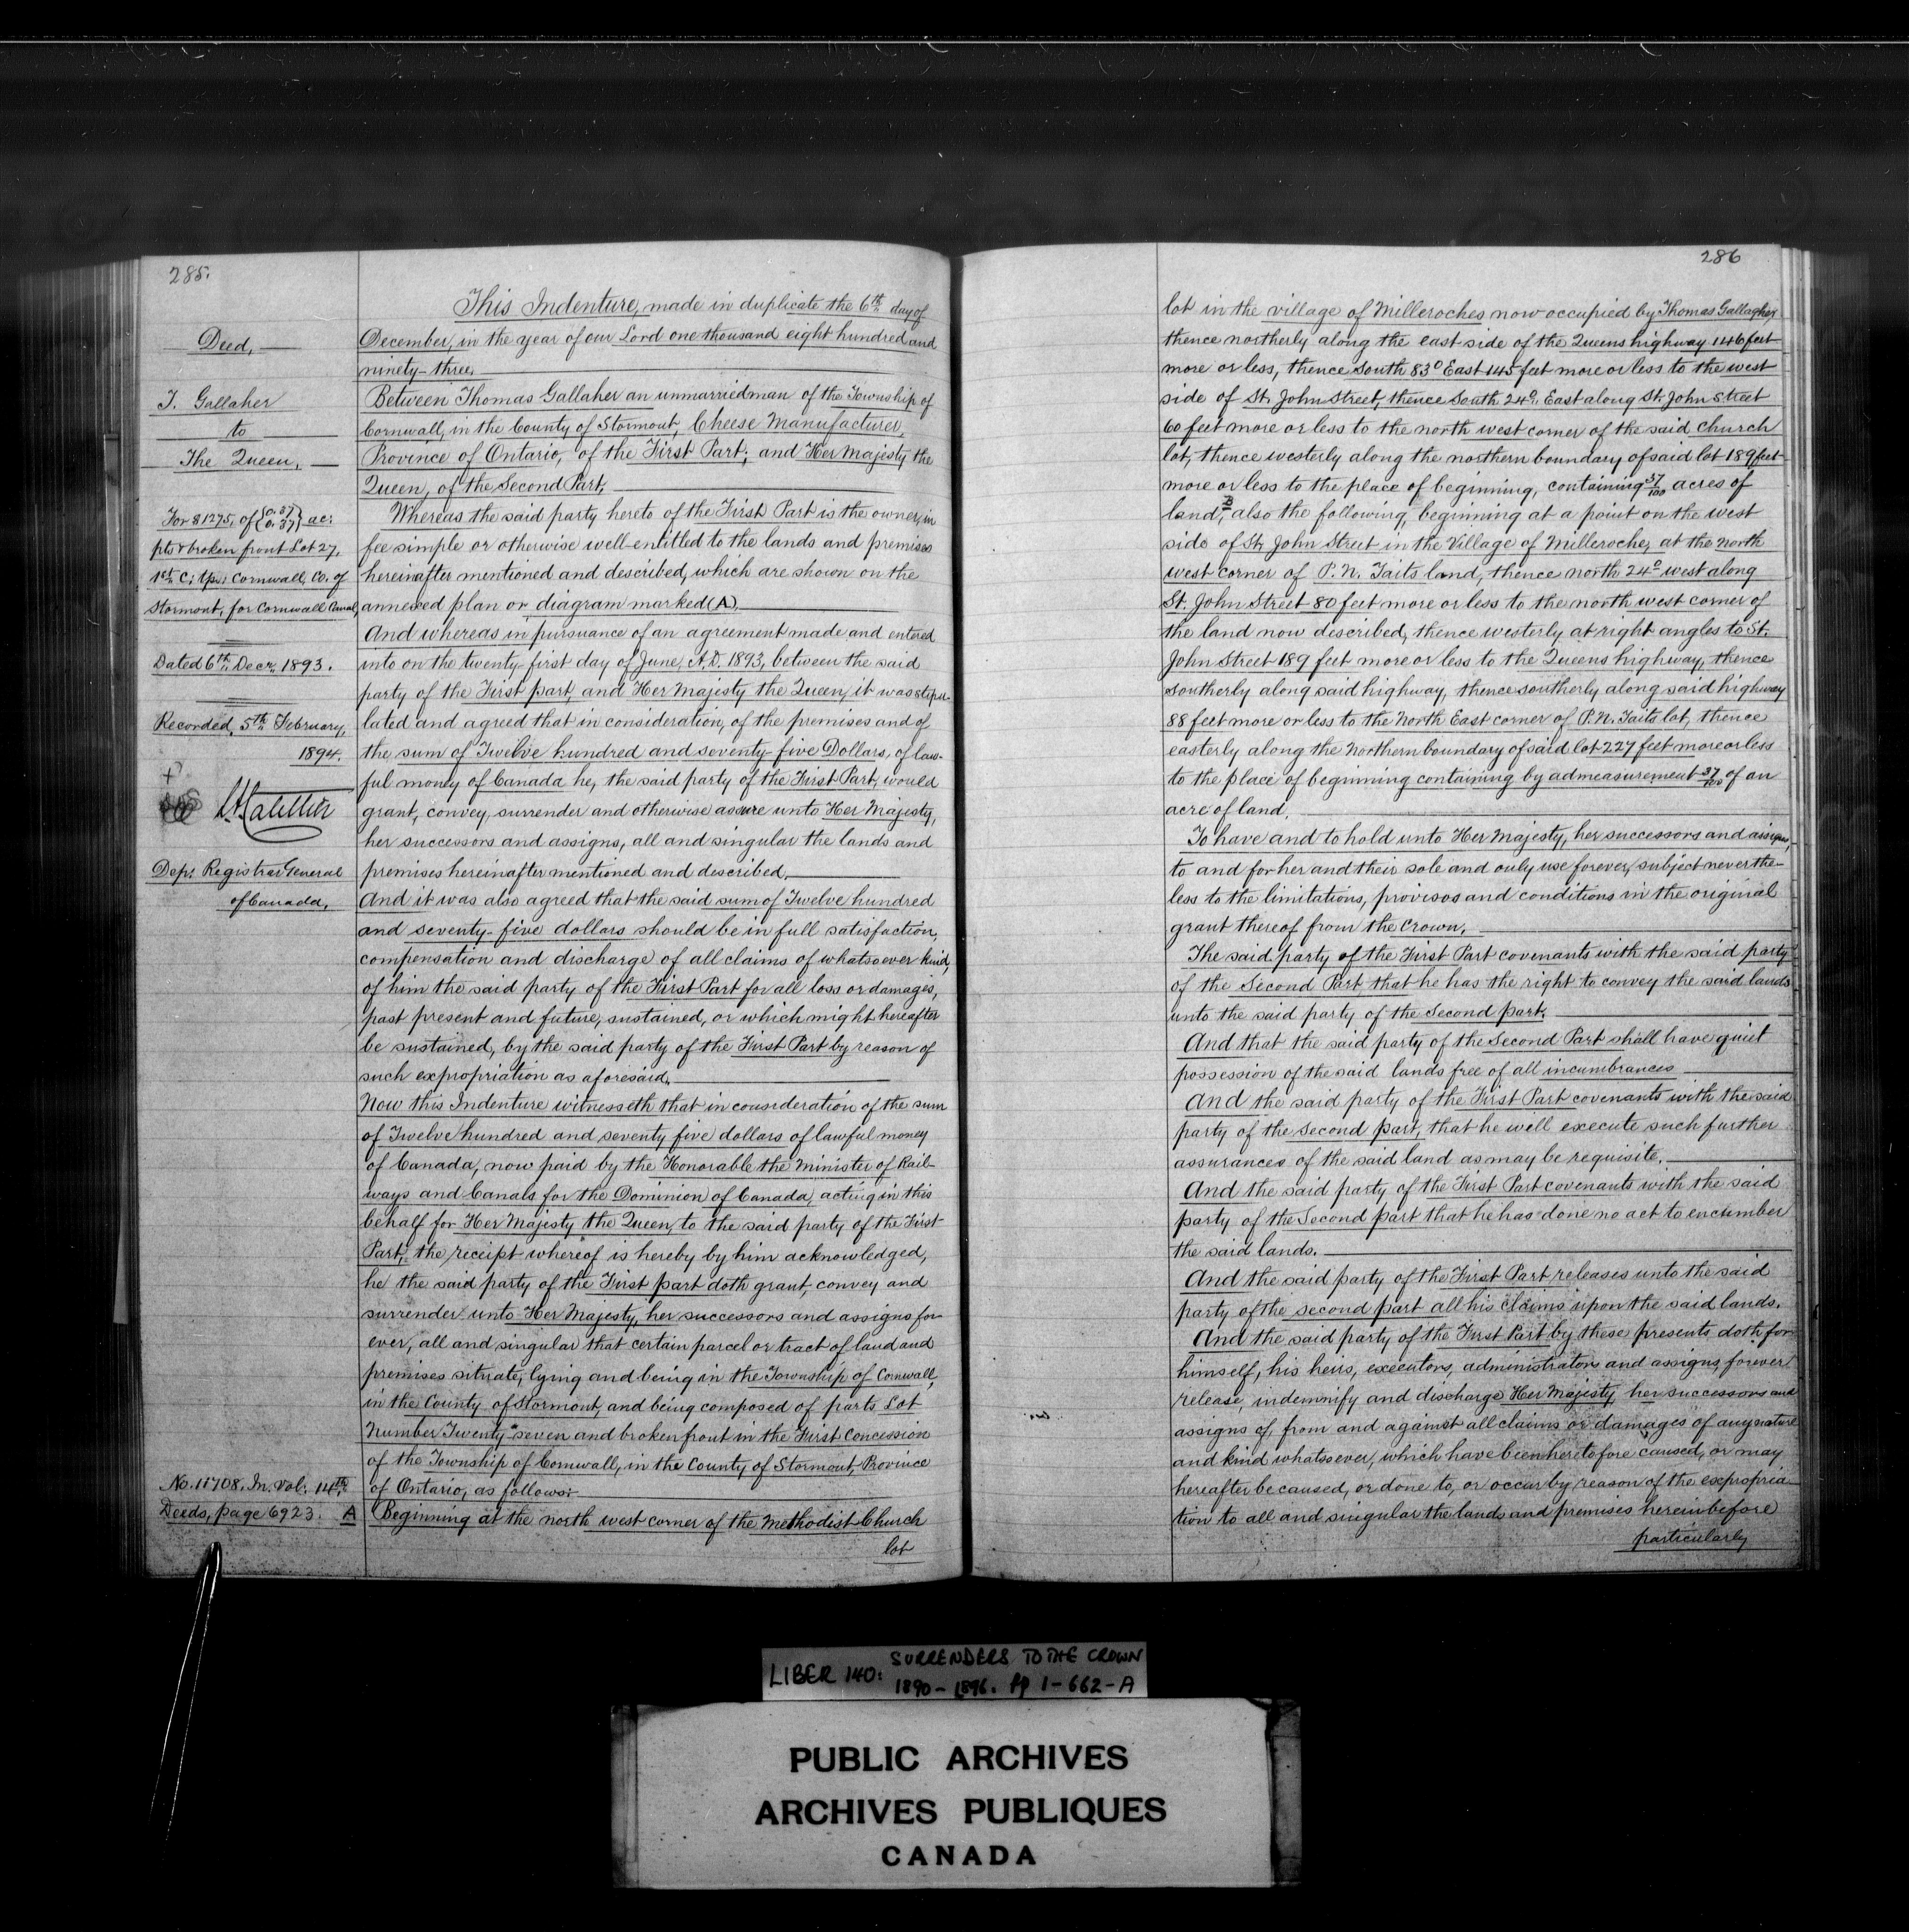 285.
Deed,
T. Gallaher
to
The Queen,
For $1275, of {0.37 0.37} ac:
pts & broken front Lot 27,
1st C; tp: Cornwall, Co. of
Stormont, for Cornwall Canal,
Dated 6th Decr. 1893.
Recorded, 5th February,
1894.
Dep: Registrar General
of Canada,
No. 11708. In. Vol: 14th
Deeds, page 6923. A
This Indenture, made in duplicate the 6th day of
December, in the year of our Lord one thousand eight hundred and
ninety-three,
Between Thomas Gallaher an unmarried man of the Township of
Cornwall, in the County of Stormont, Cheese Manufacturer,
Province of Ontario, of the First Part; and Her Majesty the
Queen, of the Second Part,
Whereas the said party hereto of the First Part is the owner, in
fee simple or otherwise well-entitled to the lands and premises
hereinafter mentioned and described, which are shown on the
annexed plan or diagram marked (A).
And whereas in pursuance of an agreement made and entered
into on the twenty-first day of June, A.D. 1893, between the said
party of the First part, and Her Majesty the Queen, it was stipu-
lated and agreed that in consideration, of the premises and of
the sum of Twelve hundred and seventy-five Dollars, of law-
ful money of Canada he, the said party of the First Part, would
grant, convey, surrender and otherwise assure unto Her Majesty,
her successors and assigns, all and singular the lands and
premises hereinafter mentioned and described.
And it was also agreed that the said sum of Twelve hundred
and seventy-five dollars should be in full satisfaction,
compensation and discharge of all claims of whatsoever kind,
of him the said party of the First Part for all loss or damages,
past present and future, sustained, or which might hereafter
be sustained, by the said party of the First Part by reason of
such expropriation as aforesaid.
Now this Indenture witnesseth that in consideration of the sum
of Twelve hundred and seventy five dollars of lawful money
of Canada, now paid by the Honorable the Minister of Rail-
ways and Canals for the Dominion of Canada, acting in this
behalf for Her Majesty the Queen, to the said party of the First
Part, the receipt whereof is hereby by him acknowledged,
he the said party of the First part doth grant, convey and
surrender unto Her Majesty, her successors and assigns for-
ever, all and singular that certain parcel or tract of land and
premises situate, lying and being in the Township of Cornwall,
in the County of Stormont, and being composed of parts Lot
Number Twenty-seven and broken front in the First Concession
of the Township of Cornwall, in the County of Stormont, Province
of Ontario, as follows:
Beginning at the north west corner of the Methodist Church
lot
286
lot in the village of Milleroches now occupied by Thomas Gallagher,
thence northerly along the east side of the Queens highway 146 feet
more or less, thence South 83° East 145 feet more or less to the west
side of St. John Street, thence South 24° East along St. John Street
60 feet more or less to the north west corner of the said church
lot, thence westerly along the northern boundary of said lot 189 feet
more or less to the place of beginning, containing 37/100 acres of
land, B also the following, beginning at a point on the west
side of St. John Street in the Village of Milleroches, at the North
west corner of P. N. Taits land, thence north 24° west along
St. John Street 80 feet more or less to the north west corner of
the land now described, thence westerly at right angles to St.
John Street 189 feet more or less to the Queens highway, thence
southerly along said highway, thence southerly along said highway
88 feet more or less to the North East corner of P. N. Taits lot, thence
easterly along the Northern boundary of said lot 227 feet more or less
to the place of beginning containing by admeasurement 37/100 of an
acre of land.
To have and to hold unto Her Majesty, her successors and assigns,
to and for her and their sole and only use forever, subject neverthe-
less to the limitations, provisos and conditions in the original
grant thereof from the Crown.
The said party of the First Part covenants with the said party
of the Second Part, that he has the right to convey the said lands
unto the said party of the Second part.
And that the said party of the Second Part shall have quiet
possession of the said lands free of all incumbrances
And the said party of the First Part covenants with the said
party of the Second part, that he will execute such further
assurances of the said land as may be requisite.
And the said party of the First Part covenants with the said
party of the Second part that he has done no act to encumber
the said lands.
And the said party of the First Part releases unto the said
party of the second part all his claims upon the said lands.
And the said party of the First Part by these presents doth for
himself, his heirs, executors, administrators and assigns, forever
release, indemnify and discharge Her Majesty, her successors and
assigns of, from and against all claims or damages of any nature
and kind whatsoever, which have been heretofore caused, or may
hereafter be caused, or done to, or occur by reason of the expropria-
tion to all and singular the lands and premises hereinbefore
particularly
LIBER 140: SURRENDERS TO THE CROWN
1890-1896. pp 1-662-A
PUBLIC ARCHIVES
ARCHIVES PUBLIQUES
CANADA